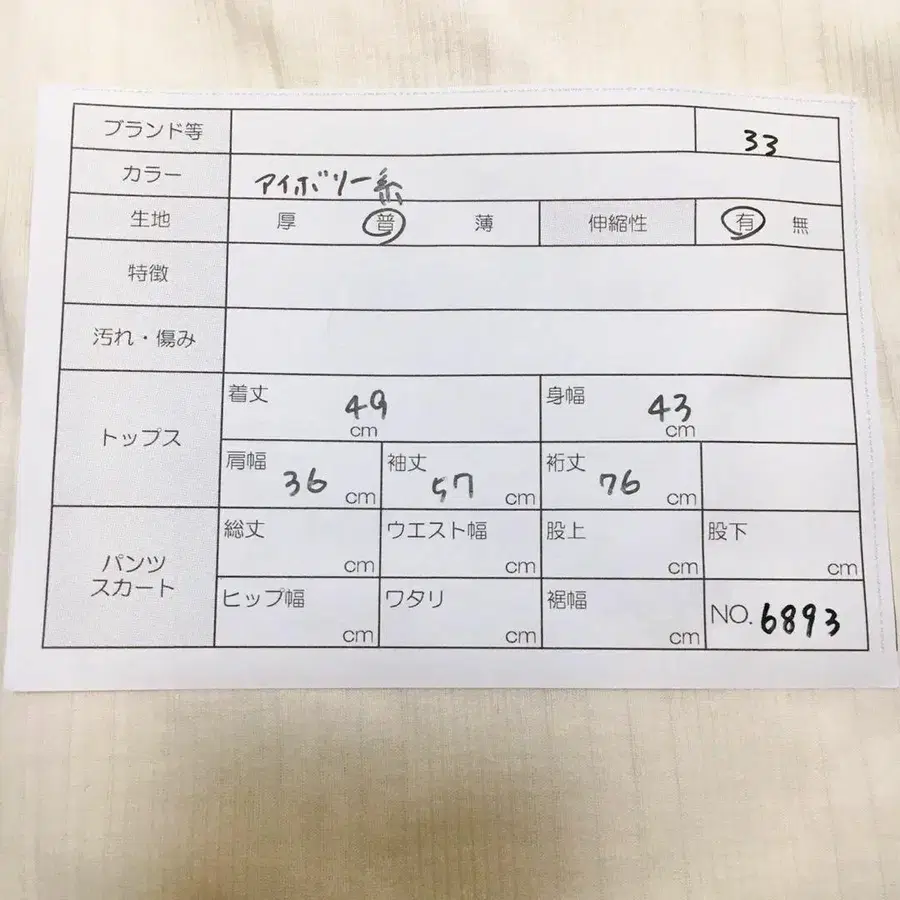 ブランド等 33
カラー アイボリー系
生地 厚 普 薄 伸縮性 有 無
特徴
汚れ・傷み
トップス
着丈 49 cm 身幅 43 cm
肩幅 36 cm 袖丈 57 cm 裄丈 76 cm
パンツ
スカート
総丈 cm ウエスト幅 cm 股上 cm 股下 cm
ヒップ幅 cm ワタリ cm 裾幅 cm NO. 6893